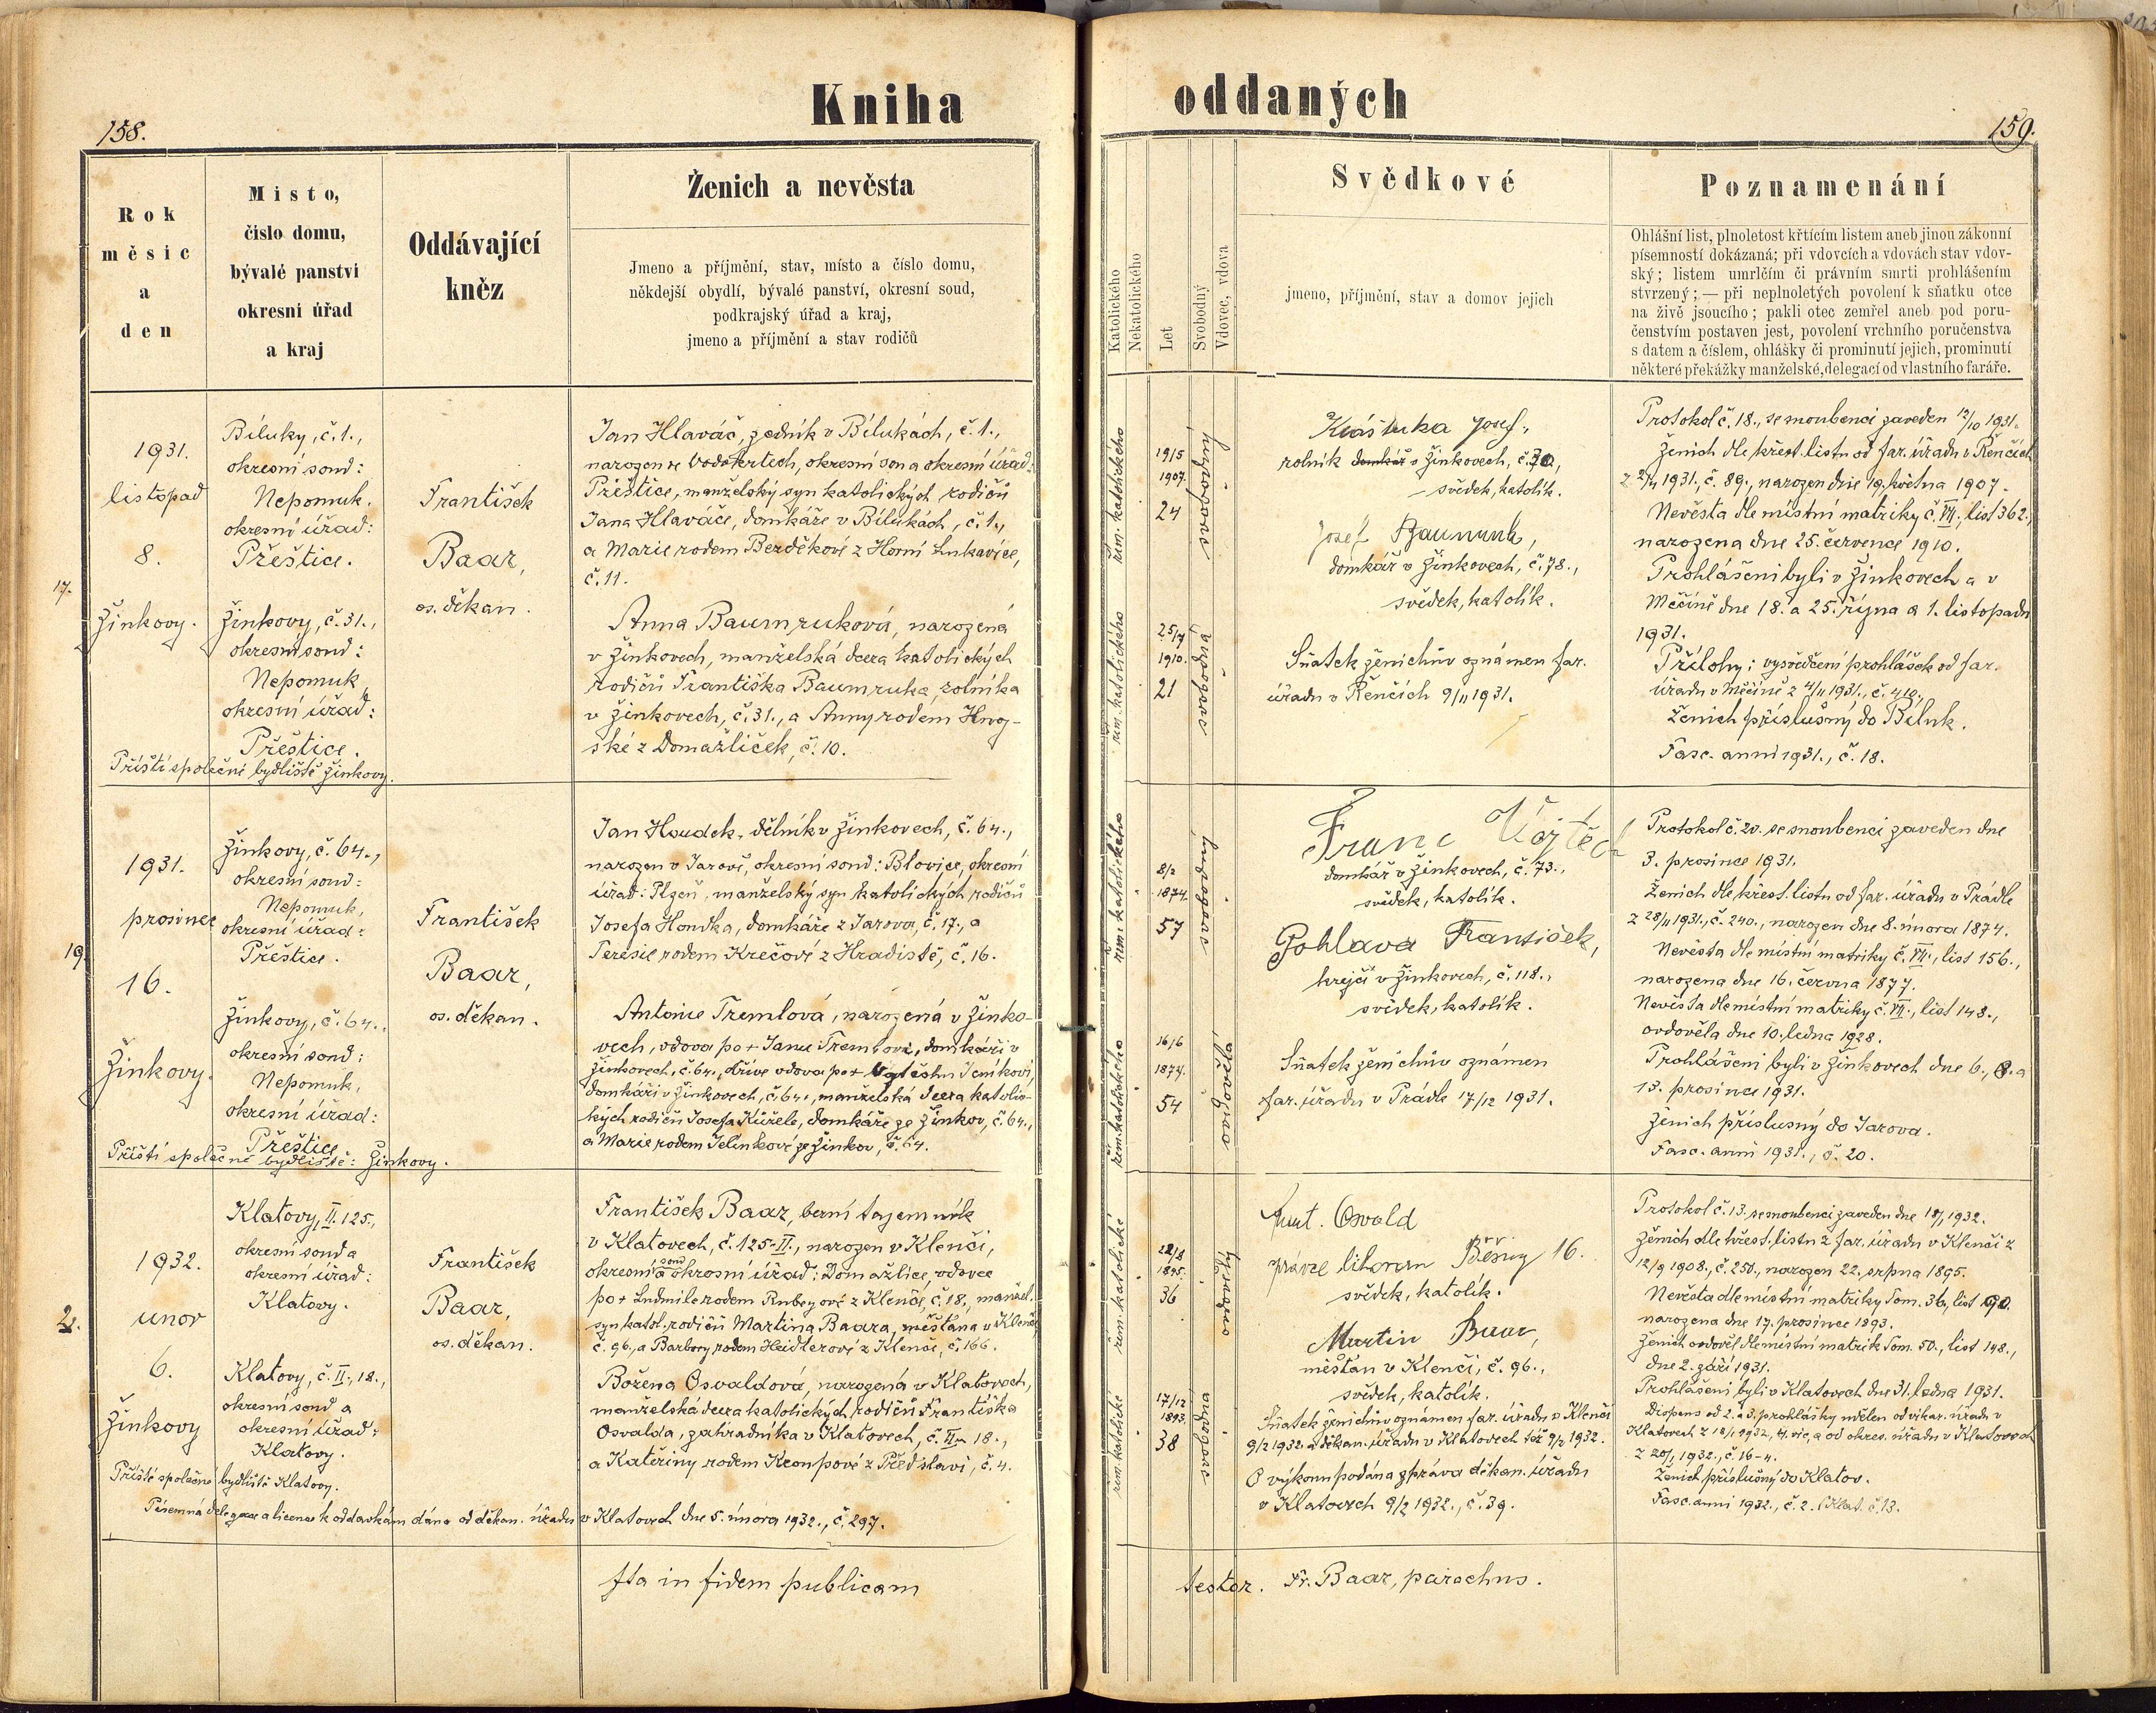 Kniha oddaných
158.
159.
Rok
měsíc
a
den
Místo,
číslo domu,
bývalé panství
okresní úřad
a kraj
Oddávající
kněz
Ženich a nevěsta
Jmeno a příjmění, stav, místo a číslo domu,
někdejší obydlí, bývalé panství, okresní soud,
podkrajský úřad a kraj,
jmeno a příjmění a stav rodičů
Katolického
Nekatolického
Let
Svobodný
Vdovec, vdova
Svědkové
jmeno, příjmění, stav a domov jejich
Poznamenání
Ohlášní list, plnoletost křtícím listem aneb jinou zákonní
písemností dokázaná; při vdovcích a vdovách stav vdov-
ský; listem umrlčím či právním smrti prohlášením
stvrzený; — při neplnoletých povolení k sňatku otce
na živě jsoucího; pakli otec zemřel aneb pod poru-
čenstvím postaven jest, povolení vrchního poručenstva
s datem a číslem, ohlášky či prominutí jejich, prominutí
některé překážky manželské, delegací od vlastního faráře.
17.
1931.
listopad
8.
Žinkovy.
Biluky, č. 1.,
okresní soud:
Nepomuk.
okresní úřad:
Přeštice.
Žinkovy, č. 31.,
okresní soud:
Nepomuk
okresní úřad:
Přeštice.
Příští společné bydliště Žinkovy.
František
Baar,
os. děkan.
Jan Hlaváč, zedník v Bilukách, č. 1.,
narozen ve Vodokrtech, okresní soud a okresní úřad:
Přeštice, manželský syn katolických rodičů
Jana Hlaváče, domkáře v Bilukách, č. 1.,
a Marie rodem Berděkové z Horní Lukavice,
č. 11.
Anna Baumruková, narozená
v Žinkovech, manželská dcera katolických
rodičů Františka Baumruka, rolníka
v Žinkovech, č. 31., a Anny rodem Hnoj-
ské z Domažliček, č. 10.
řím. katolického
19/5
1907.
24
svobodný
řím. katolického
25/7
1910.
21
svobodná
Josef,
rolník domkář v Žinkovech, č. 30,
svědek, katolík.
Josef Baumruk,
domkář v Žinkovech, č. 78.,
svědek, katolík.
Sňatek ženichův oznámen far.
úřadu v Řenčích 9/11 1931.
Protokol č. 18., se snoubenci zaveden 12/10 1931.
Ženich dle křest. listu od far. úřadu v Řenčích
z 2/11 1931., č. 89., narozen dne 19. května 1907.
Nevěsta dle místní matriky č. VII., list 362.,
narozena dne 25. července 1910.
Prohlášeni byli v Žinkovech a v
Měčíně dne 18. a 25. října a 1. listopadu
1931.
Přílohy: vysvědčení prohlášek od far.
úřadu v Měčíně z 4/11 1931., č. 410.
Ženich příslušný do Biluk.
Fasc. anni 1931., č. 18.
19.
1931.
prosinec
16.
Žinkovy.
Žinkovy, č. 64.,
okresní soud:
Nepomuk,
okresní úřad:
Přeštice.
Žinkovy, č. 64.,
okresní soud:
Nepomuk,
okresní úřad:
Přeštice
Příští společné bydliště: Žinkovy.
František
Baar,
os. děkan.
Jan Houdek, dělník v Žinkovech, č. 64.,
narozen v Jarově, okresní soud: Blovice, okresní
úřad: Plzeň, manželský syn katolických rodičů
Josefa Houdka, domkáře z Jarova, č. 17., a
Terésie rodem Krečové z Hradiště, č. 16.
Antonie Tremlová, narozená v Žinko-
vech, vdova po + Janu Tremlovi, domkáři v
Žinkovech, č. 64., dříve vdova po + Vojtěchu Jeníkovi,
domkáři v Žinkovech, č. 64., manželská dcera katolic-
kých rodičů Josefa Kůžele, domkáře ze Žinkov, č. 64.,
a Marie rodem Jelínkové ze Žinkov, č. 64.
řím. katolického
8/2
1874.
57
svobodný
řím. katolického
16/6
1877.
54
ovdovělá
Franc Vojtěch
domkář v Žinkovech, č. 73.,
svědek, katolík.
Pohlava František,
krejčí v Žinkovech, č. 118.,
svědek, katolík.
Sňatek ženichův oznámen
far. úřadu v Prádle 17/12 1931.
Protokol č. 20. se snoubenci zaveden dne
3. prosince 1931.
Ženich dle křest. listu od far. úřadu v Prádle
z 28/11 1931., č. 240., narozen dne 8. února 1874.
Nevěsta dle místní matriky č. VII., list 156.,
narozena dne 16. června 1877.
Nevěsta dle místní matriky č. VII., list 148.,
ovdověla dne 10. ledna 1928.
Prohlášeni byli v Žinkovech dne 6., 8. a
13. prosince 1931.
Ženich příslušný do Jarova.
Fasc. anni 1931., č. 20.
2.
1932.
unor
6.
Žinkovy
Klatovy, II. 125.,
okresní soud a
okresní úřad:
Klatovy.
Klatovy, č. II., 18.,
okresní soud a
okresní úřad:
Klatovy.
Příští společné bydliště Klatovy.
Písemná delegace a licence k oddavkám dána od děkan. úřadu v Klatovech dne 5. února 1932., č. 297.
František
Baar,
os. děkan.
František Baar, berní tajemník
v Klatovech, č. 125-II., narozen v Klenčí,
okresní soud a okresní úřad: Domažlice, vdovec
po + Ludmile rodem z Klenče, č. 18., manžel.
syn katol. rodičů Martina Baara, měšťana v Klenčí
č. 96., a Barbory rodem Heidlerové z Klenče, č. 166.
Božena Osvaldová, narozená v Klatovech,
manželská dcera katolických rodičů Františka
Osvalda, zahradníka v Klatovech, č. II., 18.,
a Kateřiny rodem Kroupové z Předslavi, č. 4.
řím. katolické
22/8
1895.
36
ovdovělý
řím. katolické
17/12
1893.
38
svobodná
Osvald
Běšiny 16.
svědek, katolík.
Martin Baar,
měšťan v Klenčí, č. 96.,
svědek, katolík.
Sňatek ženichův oznámen far. úřadu v Klenčí
9/2 1932. a děkan. úřadu v Klatovech též 9/2 1932.
O výkonu podána zpráva děkan. úřadu
v Klatovech 9/2 1932., č. 39.
Protokol č. 13. se snoubenci zaveden dne 18/1 1932.
Ženich dle křest. listu z far. úřadu v Klenčí z
12/9 1908., č. 250., narozen 22. srpna 1895.
Nevěsta dle místní matriky Tom. 36, list 90.
narozena dne 17. prosince 1893.
Ženich ovdověl dle místní matrik Tom. 50., list 148.,
dne 2. září 1931.
Prohlášeni byli v Klatovech dne 31. ledna 1931.
Dispens od 2. a 3. prohlášky udělen od vikar. úřadu v
Klatovech z 18/1 1932, a od okres. úřadu v Klatovech
z 20/1 1932., č. 16-4.
Ženich příslušný do Klatov.
Fasc. anni 1932., č. 2. (Klat. č. 13.
Ita in fidem publicam
testor. Fr. Baar, parochus.